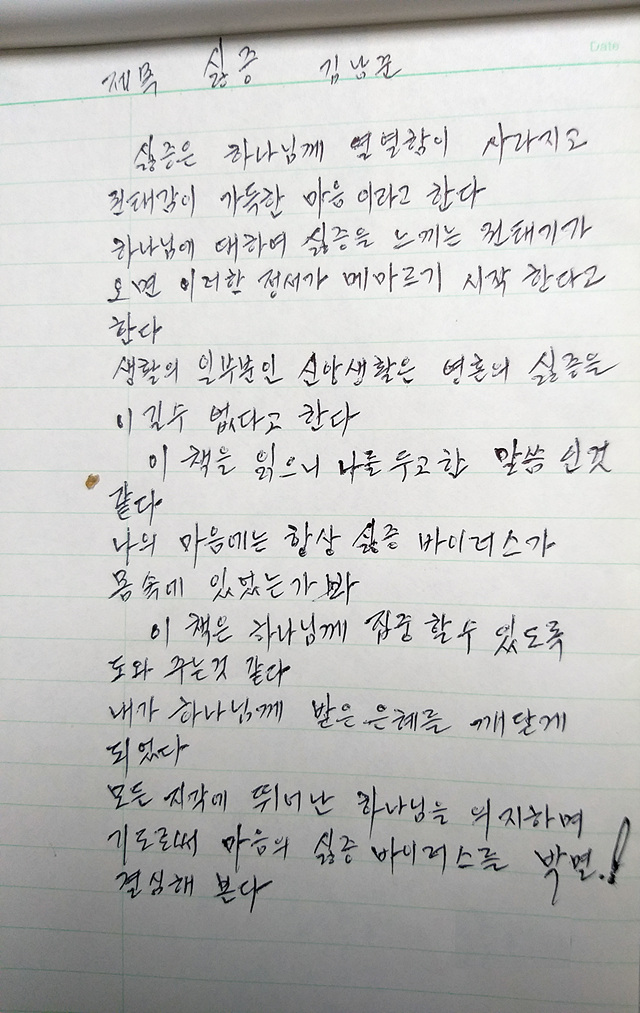 Date
제목 싫증 김남균
싫증은 하나님께 열렬함이 사라지고
권태감이 가득한 마음 이라고 한다
하나님에 대하여 싫증을 느끼는 권태기가
오면 이러한 정서가 메마르기 시작 한다고
한다
생활의 일부분인 신앙생활은 영혼의 싫증을
이길수 없다고 한다
이 책을 읽으니 나를 두고 한 말씀 인것
같다
나의 마음에는 항상 싫증 바이러스가
몸속에 있었는가 봐
이 책은 하나님께 집중 할수 있도록
도와 주는것 같다
내가 하나님께 받은 은혜를 깨닫게
되었다
모든 지각에 뛰어난 하나님을 의지하며
기도로써 마음의 싫증 바이러스를 박멸!
결심해 본다